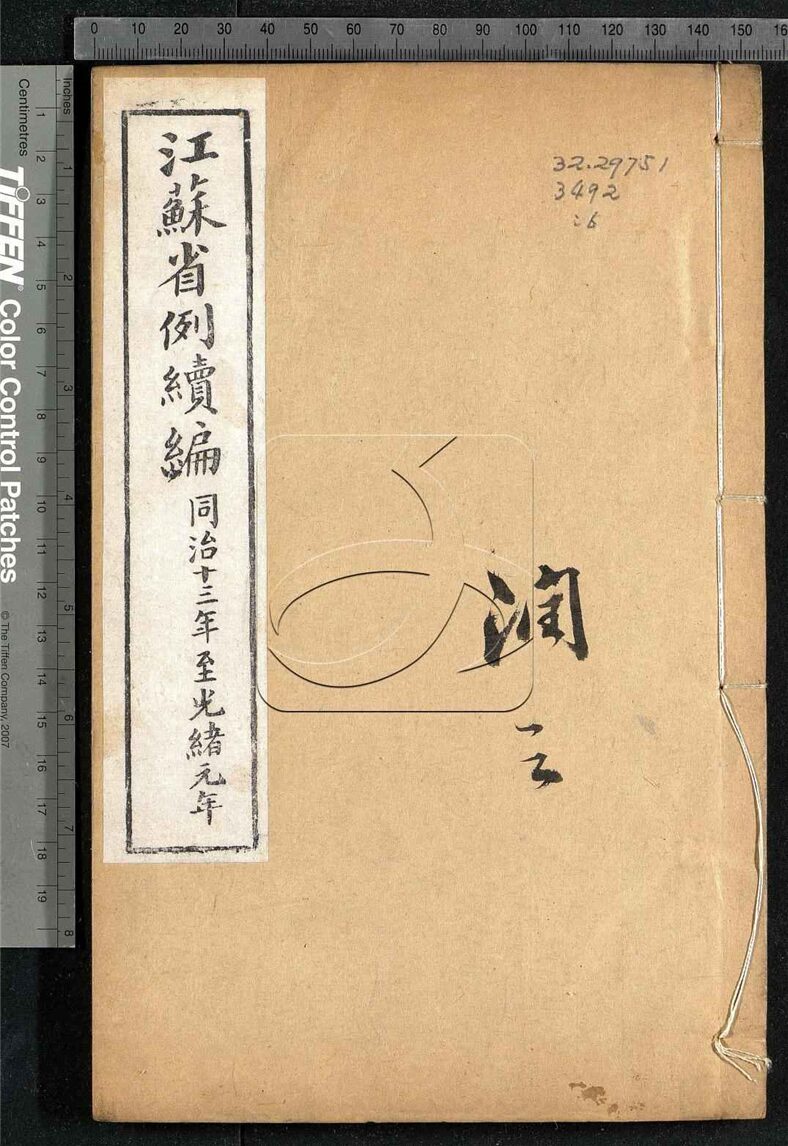 0 10 20 30 40 50 60 70 80 90 100 110 120 130 140 150 16
Inches
Centimetres
1 2 3 4 5 6 7 8 9 10 11 12 13 14 15 16 17 18 19
1 2 3 4 5 6 7 8
TIFFEN® Color Control Patches
© The Tiffen Company, 2007
32.29751
3492
:6
江蘇省例續編 同治十三年至光緒元年